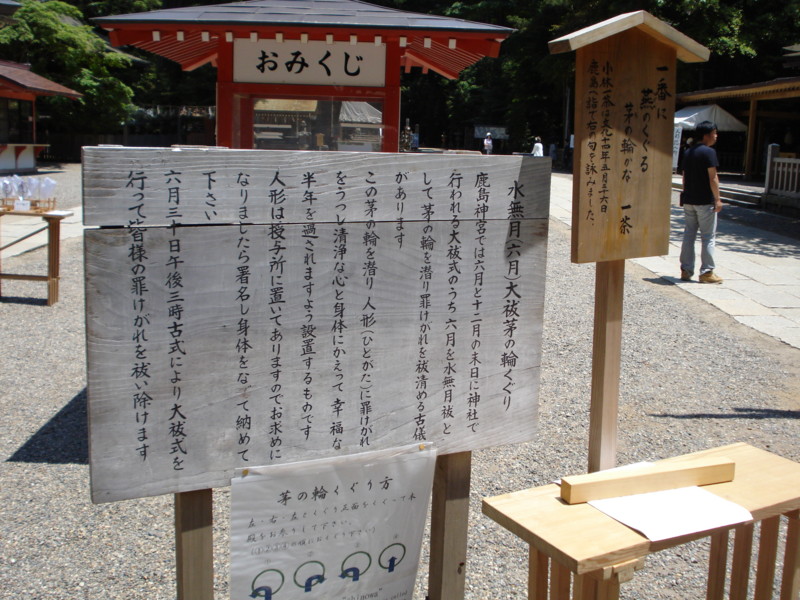 おみくじ
一番に
燕のくぐる
茅の輪かな
一茶
小林一茶は
鹿島へ詣で右の句を詠みました。
水無月(六月)大祓茅の輪くぐり
鹿島神宮では六月と十二月の末日に神社で
行われる大祓式のうち 六月を水無月祓と
して 茅の輪を潜り罪けがれを祓清める古儀
があります
この茅の輪を潜り 人形(ひとがた)に罪けがれ
をうつし清浄な心と身体にかえって 幸福な
半年を過されますよう設置するものです
人形は授与所に置いてありますのでお求めに
なりましたら署名し身体をなでて納めて
下さい
六月三十日午後三時古式により大祓式を
行って皆様の罪けがれを祓い除けます
茅の輪くぐり方
左・右・左とくぐり正面をくぐって本
殿をお参りして下さい。